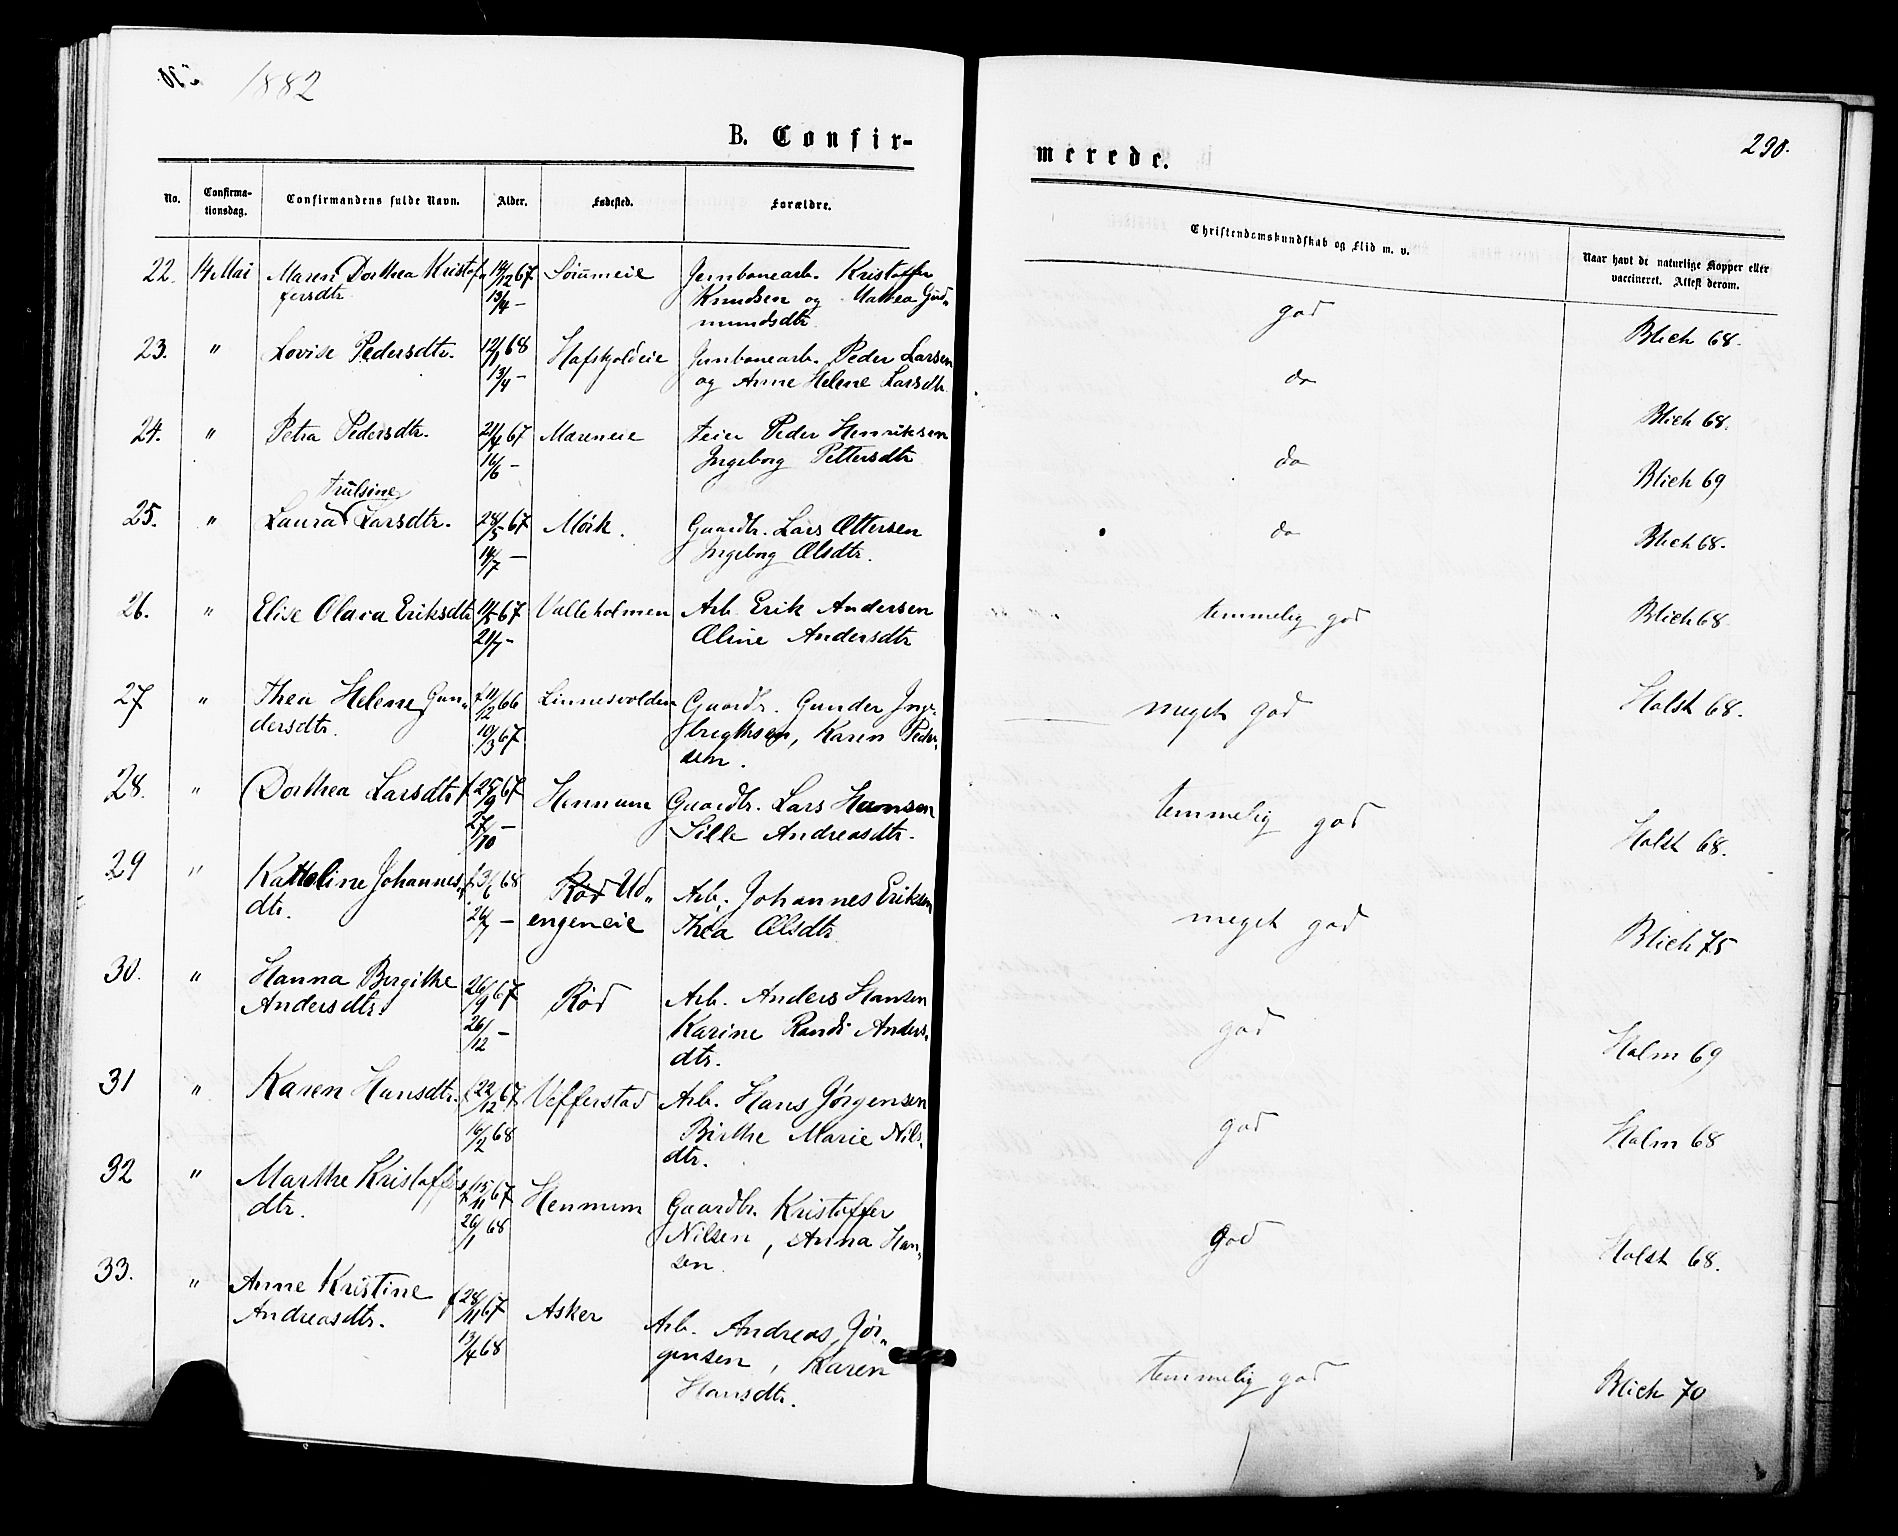 1882
B. Confir-
No. Confirma-tionsdag. Confirmandens fulde Navn. Alder. Fødested. Forældre.
22. 14 Mai Maren Dorthea Kristof 14/12 67 Sörumeie Jernbanearb. Kristoffer
fersdtr. 13/4 - Knudsen og Mathea Gud-
mundsdtr.
23. " Lovise Pedersdtr. 12/1 68 Hafskjoldeie Jernbanearb. Peder Larsen
13/4 - og Anne Helene Larsdtr.
24. " Petra Pedersdtr. 21/4 67 Mareneie Feier Peder Henriksen
16/6 - Ingeborg Pettersdtr
Trulsine
25. " Laura Larsdtr. 28/5 67 Mörk. Gaardbr. Lars Ottersen
14/7 - Ingeborg Olsdtr.
26. " Elise Olava Eriksdtr 11/5 67 Valleholmen Arb. Erik Andersen
21/7 - Oline Andersdtr
27 " Thea Helene Gun- f 11/12 66 Linnesvolden Gaardbr. Gunder Inge-
dersdtr. 10/3 67 brigthsen, Karen Peder-
sen.
28. " Dorthea Larsdtr f 25/9 67 Hennum Gaardbr. Lars Hansen
27/10 - Sille Andreasdtr.
29 " Katheline Johannes- f 3/6 68 Rød Ud-
dtr. 26/7 - engeneie Arb. Johannes Eriksen
Thea Olsdtr
30. " Hanna Bergithe 26/9 67 Röd Arb. Anders Hansen
Andersdtr. 26/12 - Karine Randi Anders-
dtr.
31 " Karen Hansdtr. f 22/12 67 Vefferstad Arb. Hans Jörgensen
16/2 68 Birthe Marie Nils-
dtr.
32 " Marthe Kristoffers f 15/11 67 Hennum Gaardbr. Kristoffer
dtr. 26/1 68 Nilsen, Anna Han-
sen.
33. " Anne Kristine f 28/11 67 Asker Arb. Andreas Jör-
Andreasdtr. 13/4 68 gensen, Karen
Hansdtr.
290.
merede.
Christendomskundskab og Flid m. v. Naar havt de naturlige Kopper eller
vaccineret. Attest derom.
god Blich 68.
do Blich 68.
do Blich 69
do Blich 68.
temmelig god Blich 68
meget god Holst 68.
temmelig god Holst 68.
meget god Blich 75
god Holm 69
god Holm 68
god Holst 68.
temmelig god Blich 70